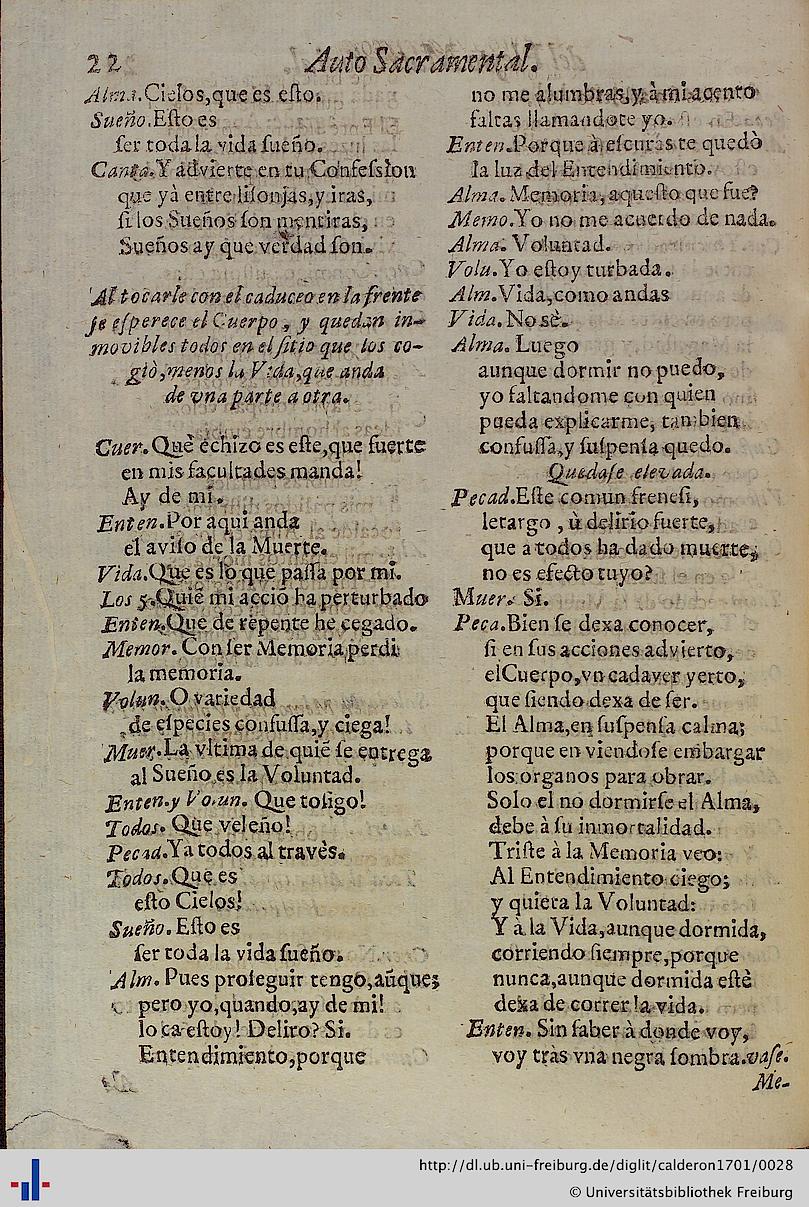 22 Auto Sacramental.
Alma. Cielos, que es esto.
Sueño. Esto es
ser toda la vida sueño.
Canta. Y advierte en tu Confession
que yà entre lisonjas, y iras,
si los Sueños son mentiras,
Sueños ay que verdad son.
Al tocarle con el caduceo en la frente
se esperece el Cuerpo, y quedan in-
movibles todos en el sitio que los co-
giò, menos la Vida, que anda
de vna parte a otra.
Cuer. Què echizo es este, que fuerte
en mis facultades manda!
Ay de mi.
Enten. Por aqui anda
el aviso de la Muerte.
Vida. Que es lo que passa por mi.
Los 5. Quiē mi acciō ha perturbado
Enten. Que de repente he cegado.
Memor. Con ser Memoria perdi
la memoria.
Volun. O variedad
de especies confussa, y ciega!
Muer. La vltima de quiē se entrega
al Sueño es la Voluntad.
Enten. y Volun. Que tosigo!
Todos. Que veleño!
Pecad. Ya todos al travès.
Todos. Que es
esto Cielos!
Sueño. Esto es
ser toda la vida sueño.
Alm. Pues proseguir tengo, aūque;
pero yo, quando, ay de mi!
loca estoy! Deliro? Si.
Entendimiento, porque
no me alumbras, y à mi acento
faltas llamandote yo.
Enten. Porque à escuras te quedò
la luz del Entendimiento.
Alma. Memoria, aquesto que fue?
Memo. Yo no me acuerdo de nada.
Alma. Voluntad.
Volu. Yo estoy turbada.
Alm. Vida, como andas
Vida. No sè.
Alma. Luego
aunque dormir no puedo,
yo faltandome con quien
pueda explicarme, tambien
confussa, y suspensa quedo.
Quedase elevada.
Pecad. Este comun frenesi,
letargo, ù delirio fuerte,
que a todos ha dado muerte,
no es efecto tuyo?
Muer. Si.
Peca. Bien se dexa conocer,
si en sus acciones advierto,
el Cuerpo, vn cadaver yerto,
que siendo dexa de ser.
El Alma, en suspensa calma;
porque en viendose embargar
los organos para obrar.
Solo el no dormirse el Alma,
debe à su inmortalidad.
Triste à la Memoria veo:
Al Entendimiento ciego;
y quieta la Voluntad:
Y à la Vida, aunque dormida,
corriendo siempre, porque
nunca, aunque dormida estè
dexa de correr la vida.
Enten. Sin saber à donde voy,
voy tràs vna negra sombra. vase.
Me-
http://dl.ub.uni-freiburg.de/diglit/calderon1701/0028
© Universitätsbibliothek Freiburg